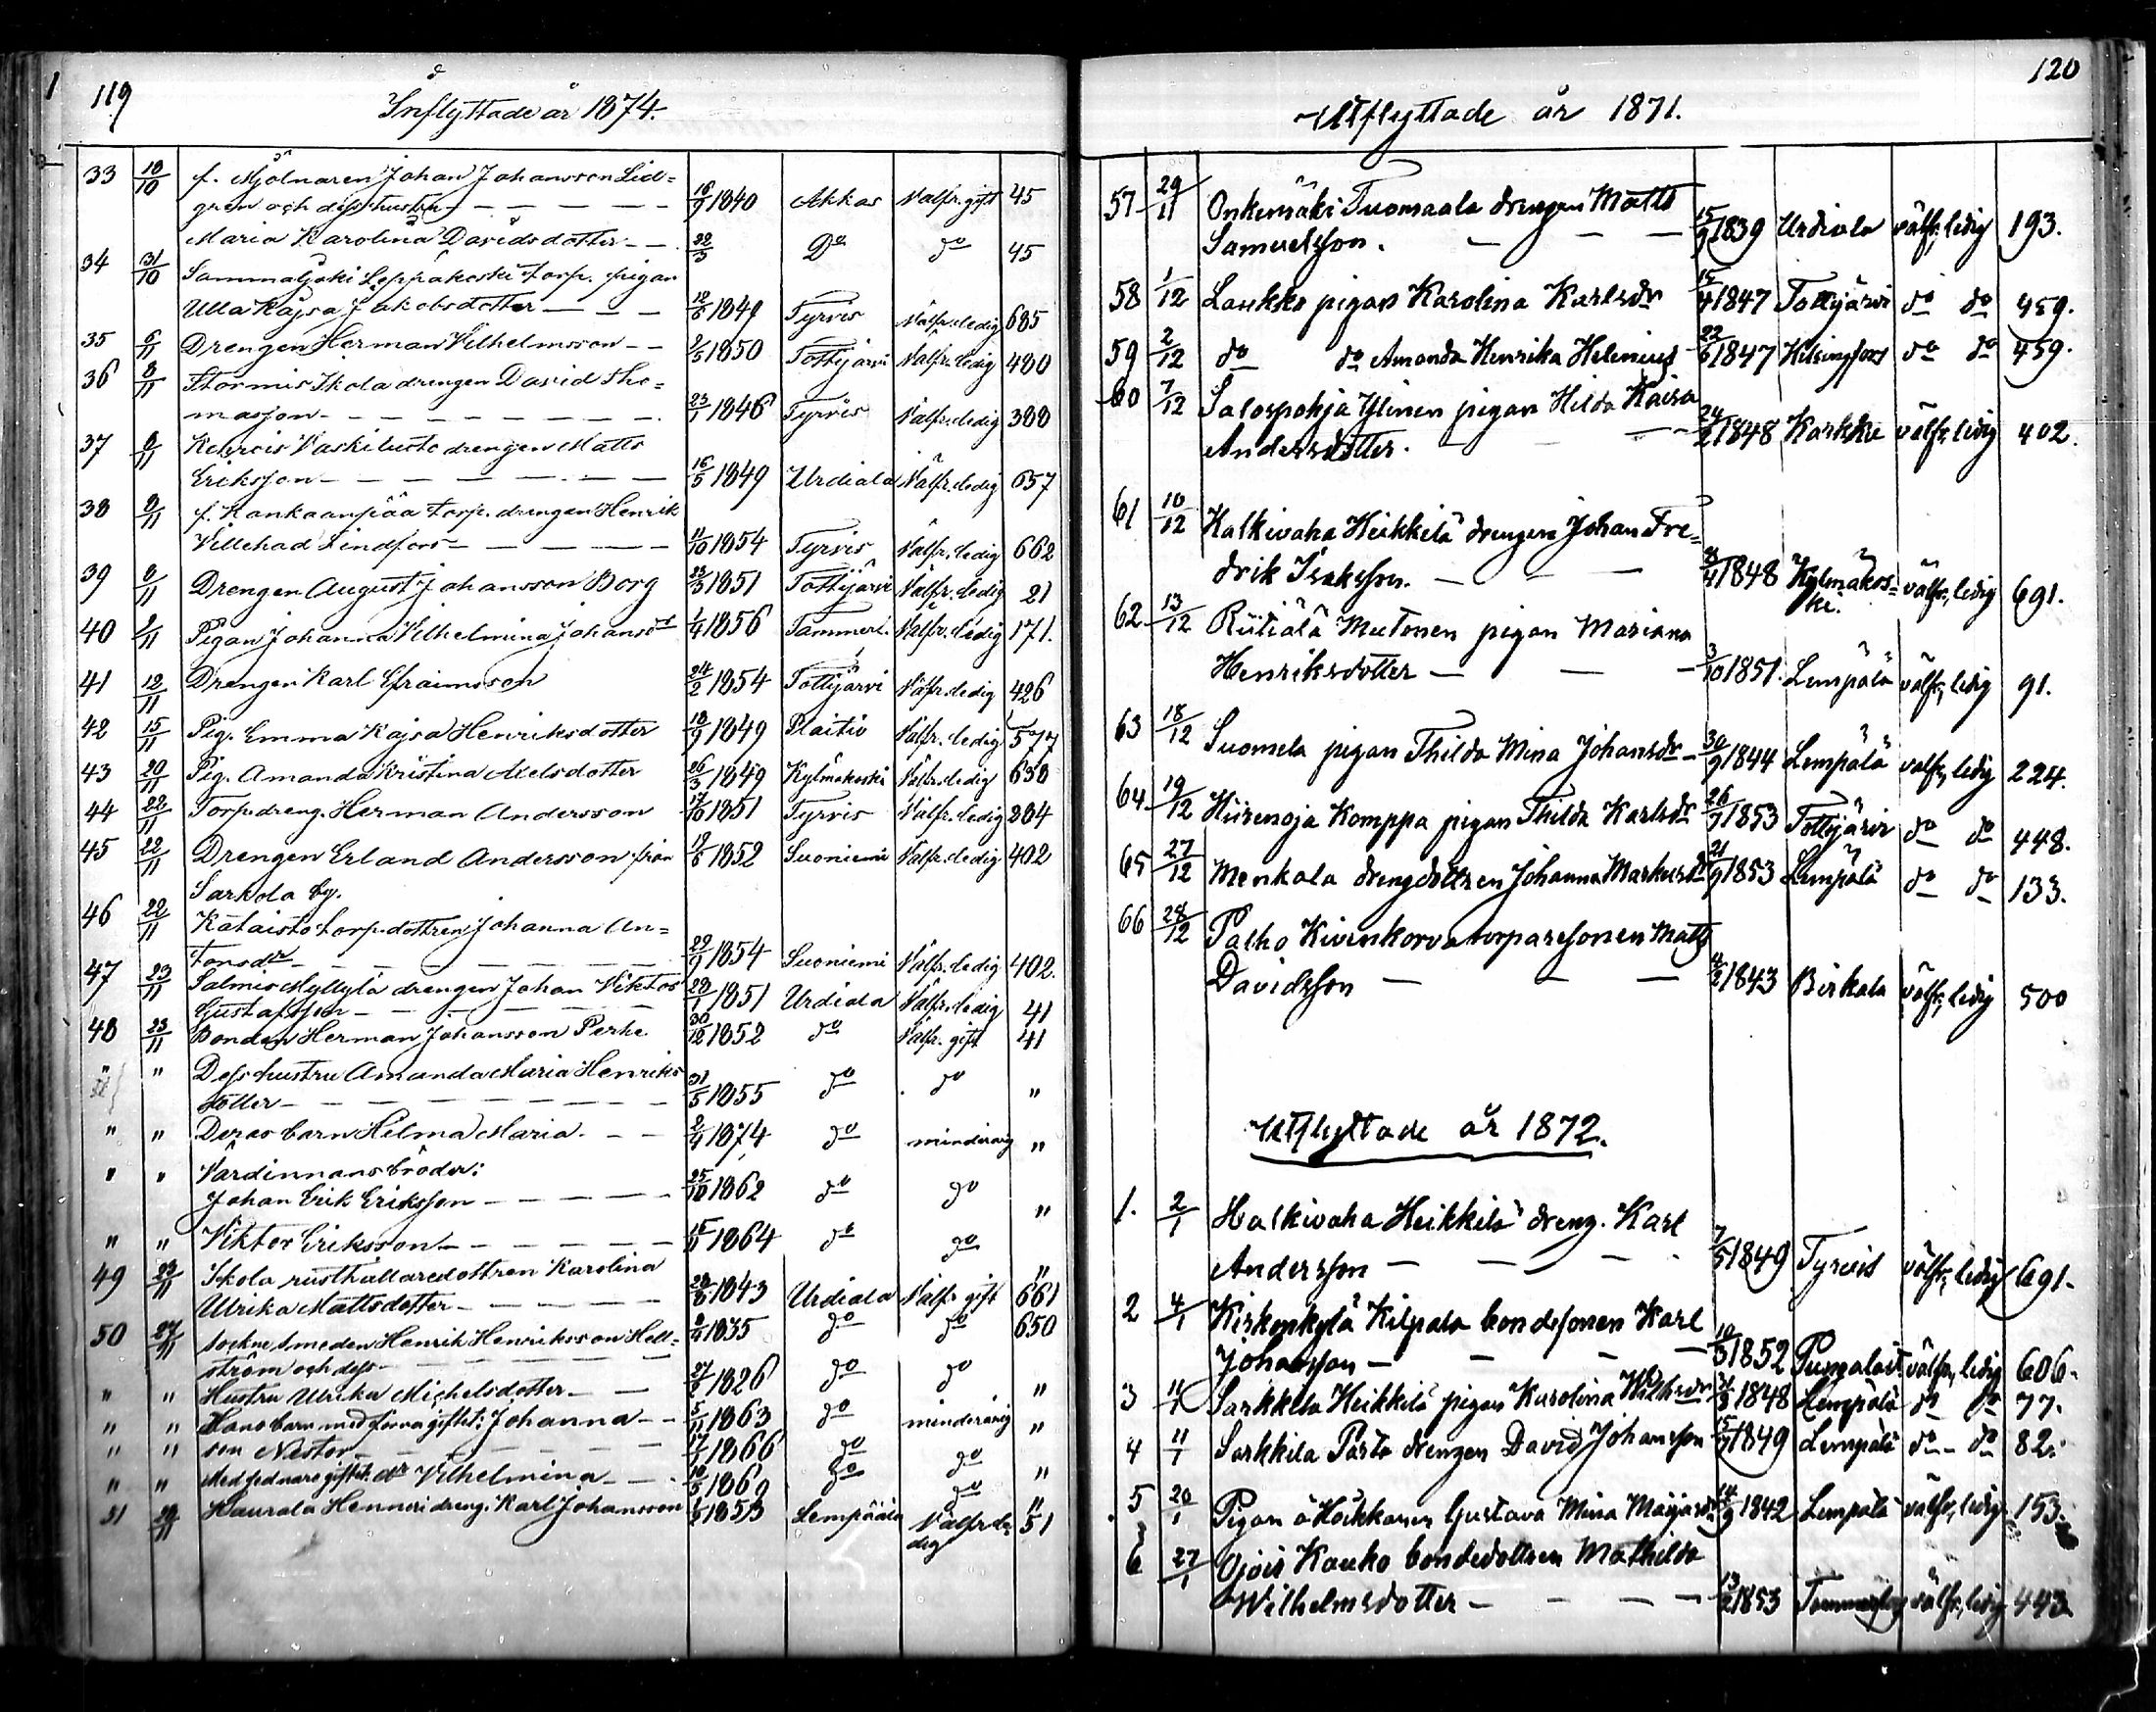 119
Inflyttade år 1874.
33 10/10 f. Mjölnaren Johan Johansson Lid=
gren och dess hustru — — — — — 16/9 1840 Akkas Välfr. gift 45
Maria Karolina Davidsdotter — — 22/3 Do do 45
34 31/10 Sammaljoki Leppäkoski torp. pigan
Ulla Kajsa Jakobsdotter — — — 1849 Tyrvis Välfr. ledig 685
35 6/11 Drengen Herman Vilhelmsson — — 2/5 1850 Tottijärvi Välfr. ledig 480
36 8/11 Stormis Skola drengen David Tho=
masson — — — — — — — 23/1 1846 Tyrvis Välfr. ledig 388
37 8/11 Vaskiluoto drengen Matts
Eriksson — — — — — — — 16/5 1849 Urdiala Välfr. ledig 657
38 8/11 f. Kankaanpää torp. drengen Henrik
Villehad Lindfors — — — — — 11/10 1854 Tyrvis Välfr. ledig 662
39 8/11 Drengen August Johansson Borg 23/3 1851 Tottijärvi Välfr. ledig 21
40 9/11 Pigan Johanna Vilhelmina Johansdr 1/4 1856 Tammerf. Välfr. ledig 171.
41 12/11 Drengen Karl Efraimsson 24/2 1854 Tottijärvi Välfr. ledig 426
42 15/11 Pig. Emma Kajsa Henriksdotter 18/9 1849 Välfr. ledig 577
43 20/11 Pig. Amanda Kristina Axelsdotter 26/3 1849 Kylmäkoski Välfr. ledig 638
44 22/11 Torp.dreng. Herman Andersson 17/10 1851 Tyrvis Välfr. ledig 284
45 22/11 Drengen Erland Andersson från 19/6 1852 Suoniemi Välfr. ledig 402
Sarkola by.
46 22/11 Kataisto torp.dottren Johanna An=
tonsdr — — — — — — — 29/9 1854 Suoniemi Välfr. ledig 402.
47 23/11 Salmis Myllylä drengen Johan Viktor 28/1 1851 Urdiala Välfr. ledig 41
Gustafsson — — — — —
48 23/11 Bonden Herman Johansson Perhe 30/12 1852 do Välfr. gift 41
" " Dess hustru Amanda Maria Henriks
dotter — — — — — — — 31/5 1855 do do "
" " Deras barn Hilma Maria. — — 2/4 1874 do minderårig "
" " Värdinnans bröder:
Johan Erik Eriksson — — — — 25/10 1862 do do "
" " Viktor Eriksson — — — — — 15/11 1864 do do "
49 23/11 Skola rusthållaredottren Karolina
Ulrika Mattsdotter — — — — 1843 Urdiala Välfr. gift 661
50 27/11 sockne smeden Henrik Henriksson Hell= 1835 do do 650
ström och dess — — — — —
" " Hustru Ulrika Michelsdotter — — 1826 do do "
" " Hans barn med förra giftet: Johanna — — 5/11 1863 do minderårig "
" " son Nestor — — — — — 1866 do do "
" " Med sednare giftet dr Vilhelmina — — 10/5 1869 do do "
51 Haurala Henneri dreng. Karl Johansson 1853 Lempäälä Välfr. le= 51
dig
120
Utflyttade år 1871.
57 29/11 Onkemäki Tuomaala drengen Matts
Samuelsson. — — — 15/9 1839 Urdiala välfr, ledig 193.
58 1/12 Laukko pigan Karolina Karlsdr 15/4 1847 Tottijärvi do do 459.
59 2/12 do do Amanda Henrika Helenius 22/6 1847 Helsingfors do do 459.
60 7/12 Salospohja Ylinen pigan Hilda Kaisa
Andersdotter. — — 24/2 1848 Karkku välfr, ledig 402.
61 10/12 Halkivaha Heikkilä drengen Johan Fre=
drik Isaksson. — — — 1848 Kylmäkos= välfr, ledig 691.
ki.
62 13/12 Riitiälä Meetonen pigan Mariana
Henriksdotter — — — 3/10 1851. Lempälä välfr, ledig 91.
63 18/12 Suomela pigan Thilda Mina Johansdr — 30/9 1844 Lempälä välfr, ledig 224.
64 19/12 Hiirenoja Komppa pigan Thilda Karlsdr 26/7 1853 Tottijärvi do do 448.
65 27/12 Menkala drengdottren Johanna Markusdr 21/9 1853 Lempälä do do 133.
66 28/12 Palho Kivenkorva torparesonen Matts
Davidsson — — — 1843 Birkala välfr, ledig 500
Utflyttade år 1872.
1. 2/1 Halkivaha Heikkilä dreng. Karl
Andersson — — — 7/5 1849 Tyrvis välfr, ledig 691.
2 4/1 Kirkonkylä Kilpala bondesonen Karl
Johansson — — — 1852 Pungalait. välfr, ledig 606.
3 11/1 Sarkkila Heikkilä pigan Karolina Wilhsdr 1848 Lempälä do do 77.
4 11/1 Sarkkila Pärto drengen David Johansson 15/7 1849 Lempälä do do 82.
5 20/1 Pigan å Häikkanen Gustava Mina Maijasdr 14/9 1842 Lempälä välfr, ledig 153.
6 27/1 Ojois Kauko bondedottren Mathilda
Wilhelmsdotter — — — 13/2 1853 Tammerfors välfr, ledig 443.